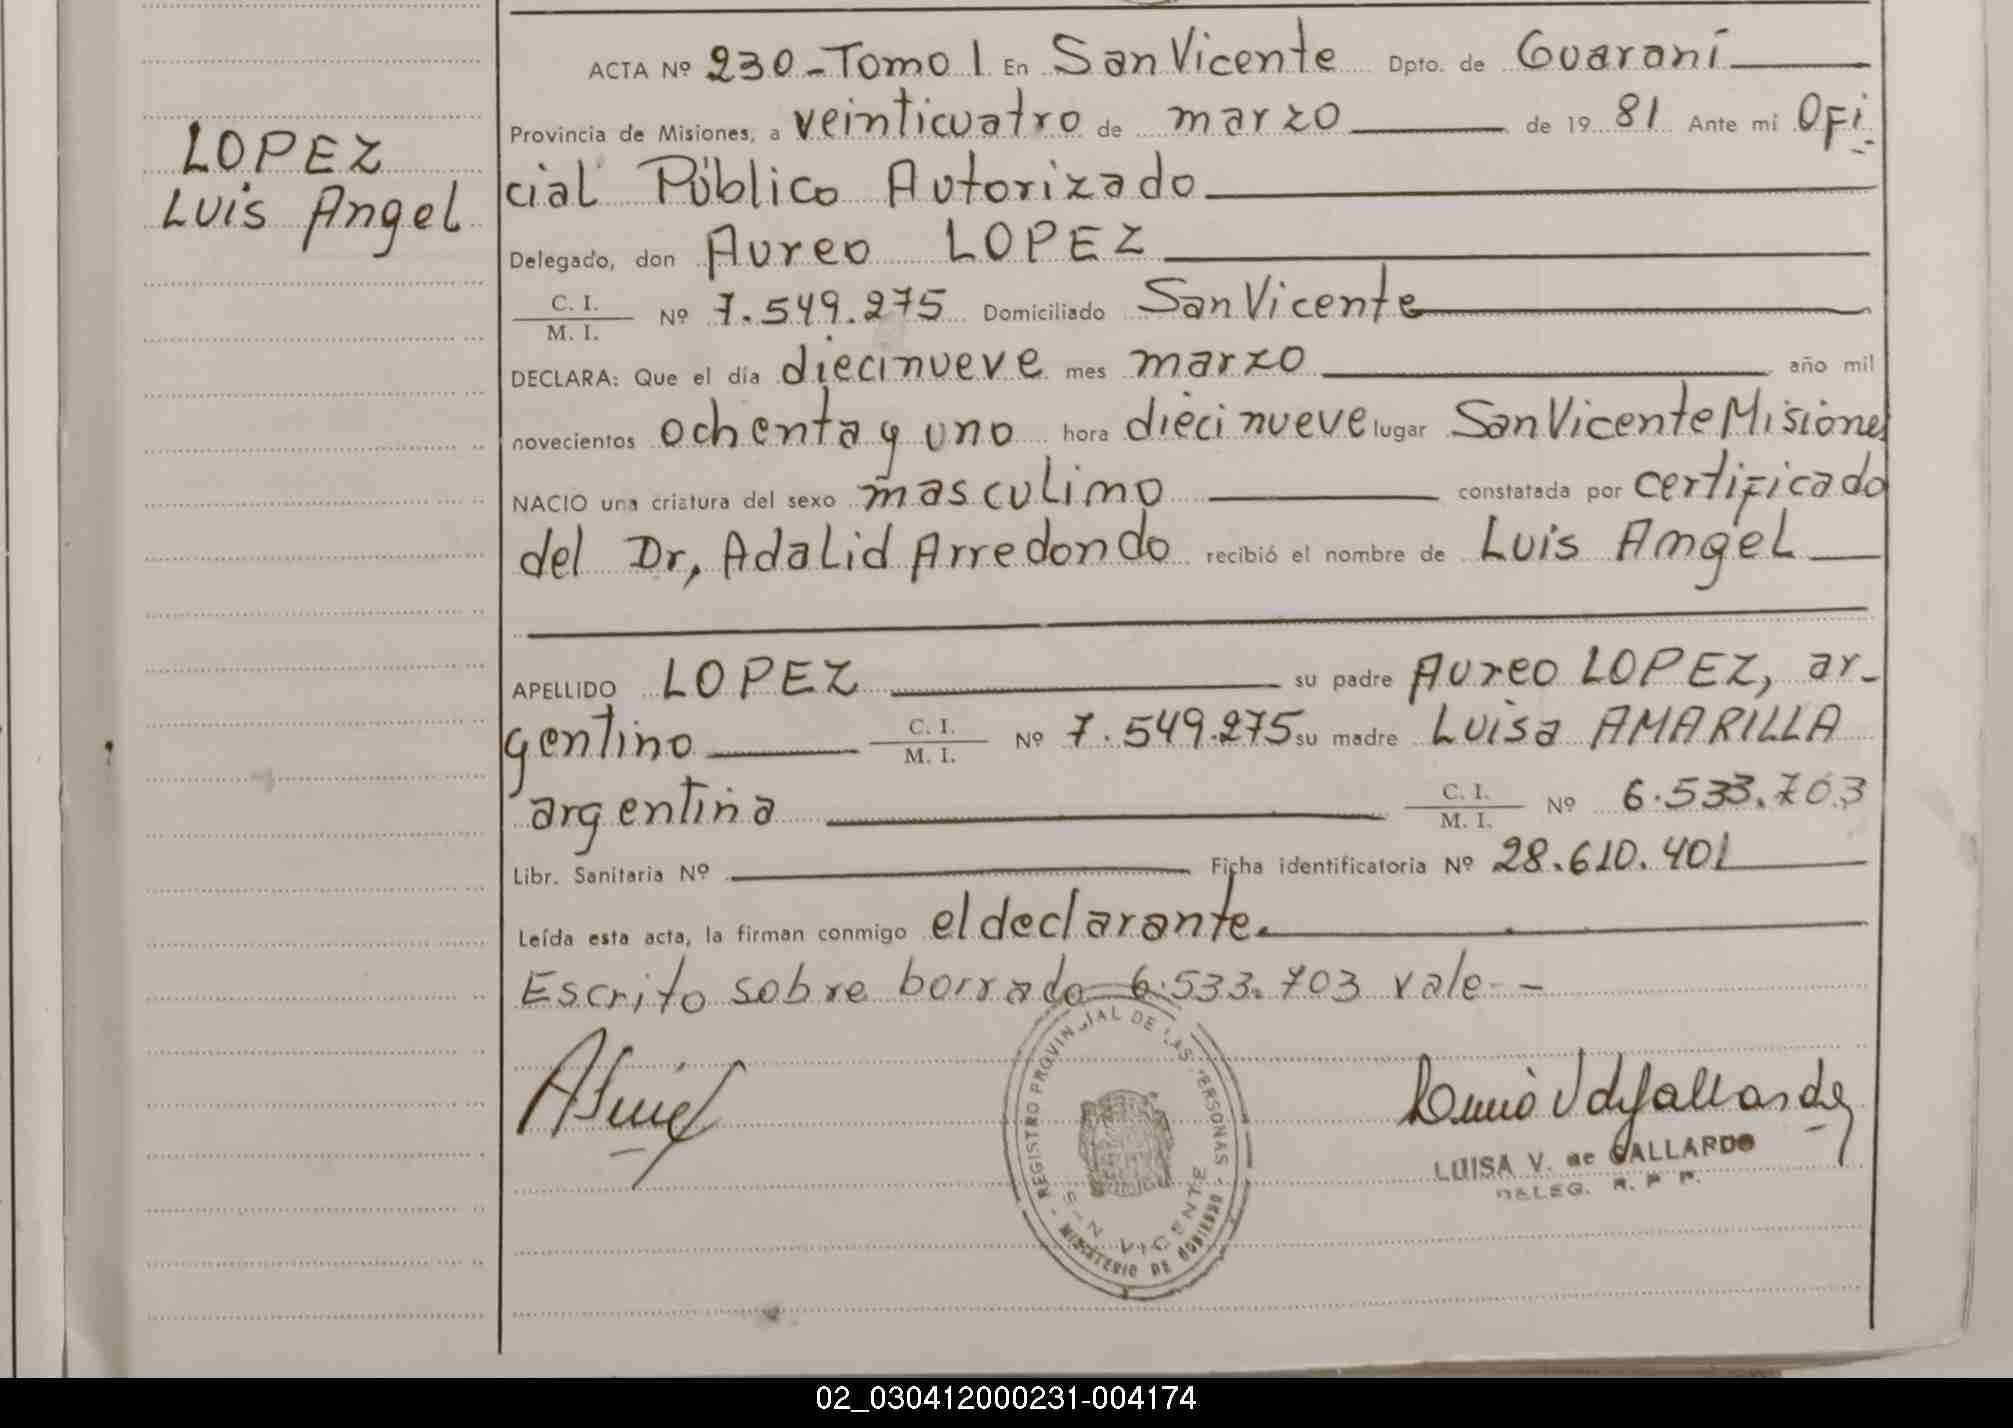 LOPEZ
Luis Angel
ACTA Nº 230-Tomo 1 En San Vicente Dpto. de Guaraní
Provincia de Misiones, a veinticuatro de marzo de 1981 Ante mi Ofi-
cial Público Autorizado
Delegado, don Aureo LOPEZ
C. I.
M. I. Nº 7.549.275 Domiciliado San Vicente
DECLARA: Que el día diecinueve mes marzo año mil
novecientos ochenta y uno hora diecinueve lugar San Vicente Misiones
NACIO una criatura del sexo masculino constatada por certificado
del Dr, Adalid Arredondo recibió el nombre de Luis Angel
APELLIDO LOPEZ su padre Aureo LOPEZ, ar-
gentino C. I.
M. I. Nº 7.549.275 su madre Luisa AMARILLA
argentina C. I.
M. I. Nº 6.533.703
Libr. Sanitaria Nº Ficha identificatoria Nº 28.610.401
Leída esta acta, la firman conmigo el declarante.
Escrito sobre borrado 6.533.703 vale-
REGISTRO PROVINCIAL DE LAS PERSONAS
SAN VICENTE
MINISTERIO DE GOBIERNO
LUISA V. de GALLARDO
DELEG. R. P. P.
02_030412000231-004174